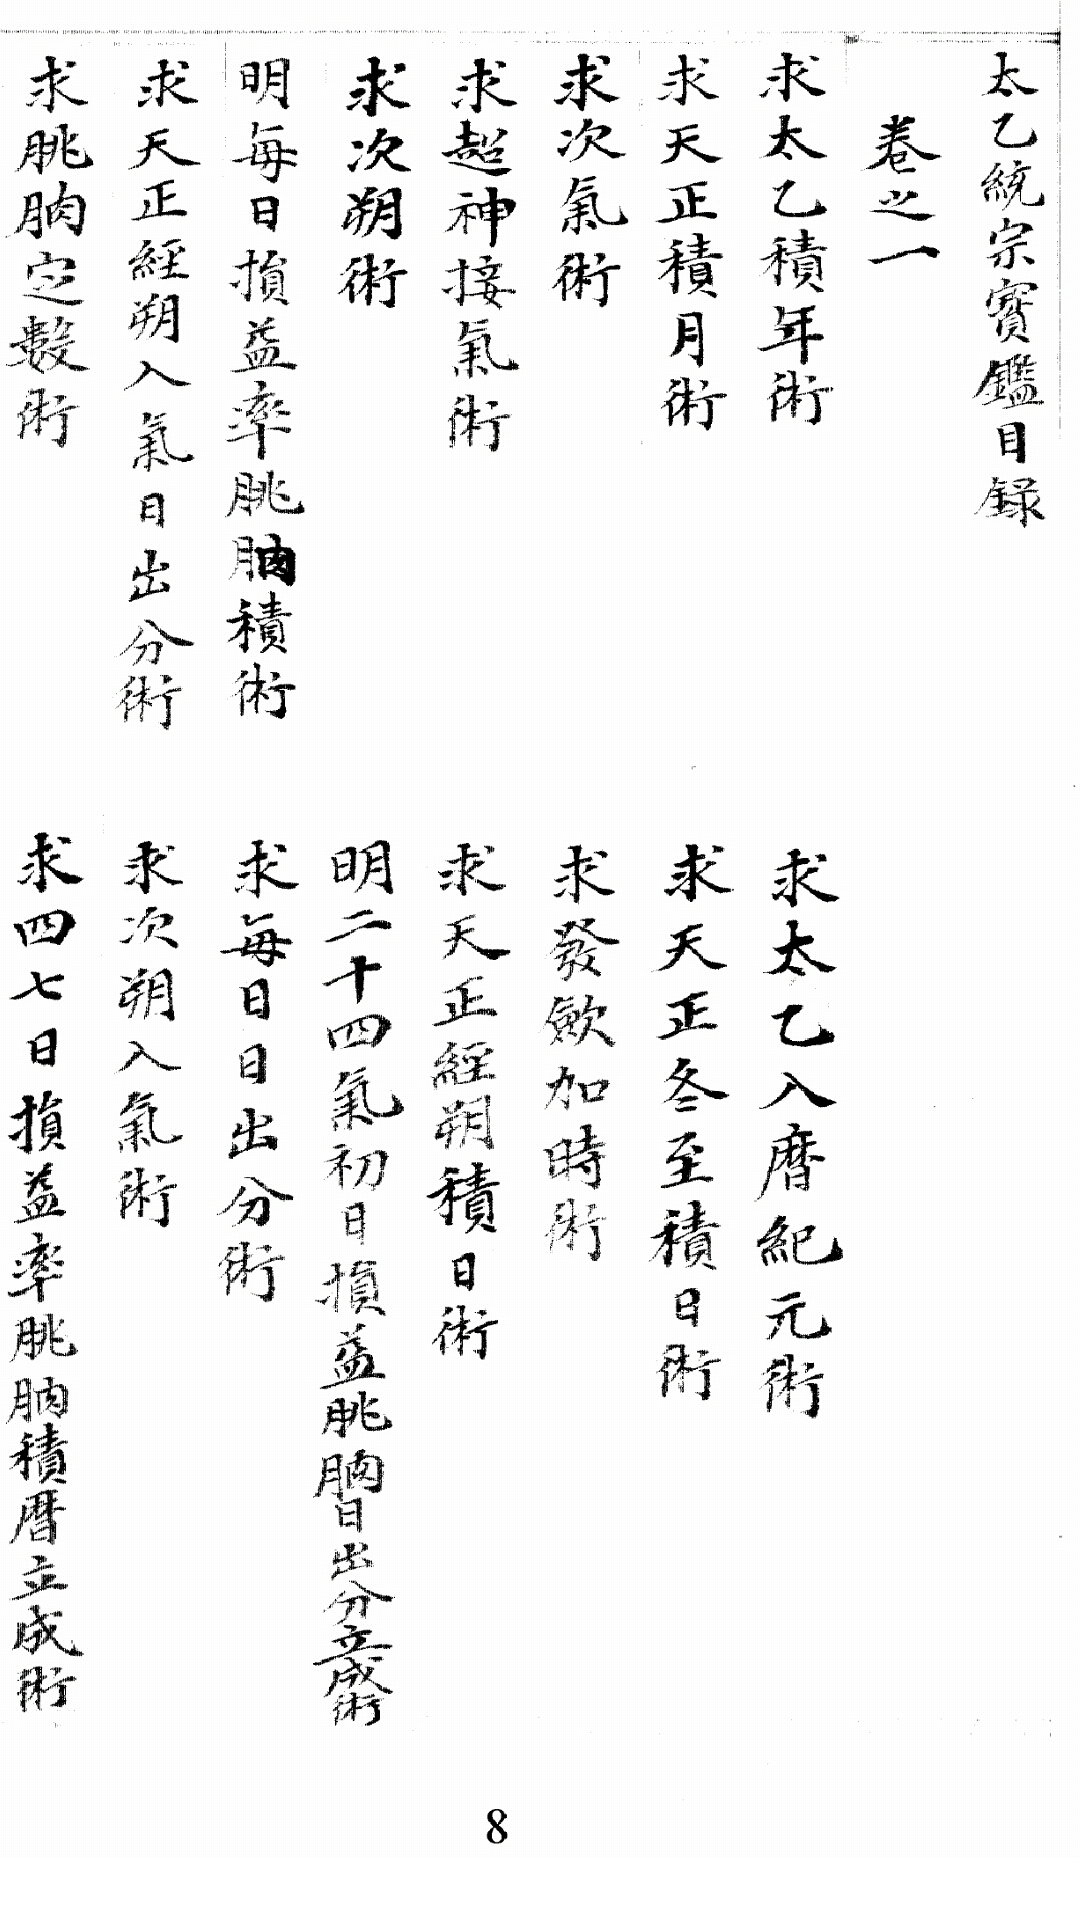 太乙統宗寳鑑目録
卷之一
求太乙積年術
求太乙入暦紀元術
求天正積月術
求天正冬至積日術
求次氣術
求發歛加時術
求超神接氣術
求天正經朔積日術
求次朔術
明二十四氣初日損益朓朒日出分立成術
明每日損益率朓朒積術
求每日日出分術
求天正經朔入氣日出分術
求次朔入氣術
求朓朒定數術
求四七日損益率朓朒積暦立成術
8